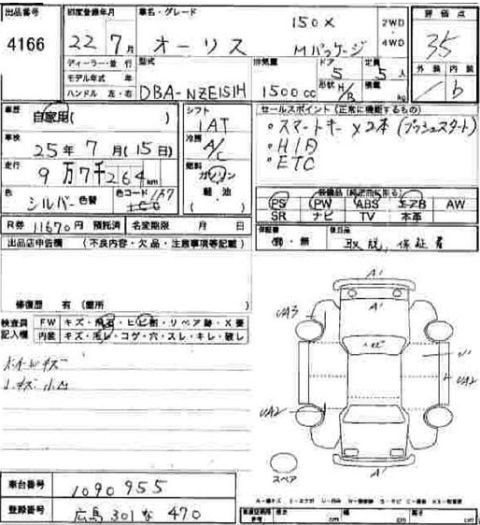 出品番号
4166
初度登録年月
22年7月
車名・グレード
オーリス
150X
Mパッケージ
2WD
4WD
評価点
3.5
外装 内装
b
ディーラー・並行
モデル年式 年
ハンドル 左・右
型式
DBA-NZE151H
排気量
1500cc
ドア
5
形状 H/B
定員
5人
積載
kg
車歴
自家用( )
車検
25年7月(15日)
走行
9万7千264km
色
シルバー 色替
カラーコード
1F7
シフト
IAT
冷房
A/C
燃料
ガソリン
軽油
( )
セールスポイント(正常に機能するもの)
・スマートキー×2本(プッシュスタート)
・HID
・ETC
装備品(純正のみに限る)
PS PW ABS エアB AW
SR ナビ TV 本革
保証書
有・無
後日品
取説、保証書
R券 11670円 預託済 名変期限 月 日
出品店申告欄 (不良内容・欠品・注意事項等記載)
修復歴 有(箇所
検査員
記入欄
FW キズ・飛石・ヒビ割・リペア跡・X要
内装 キズ・汚レ・コゲ・穴・スレ・キレ・破レ
A1
A1
UA3
ヘビ
U1
UA2
UA2
A1
スペア
車台番号
1090955
登録番号
広島 301 な 470
cm cm cm